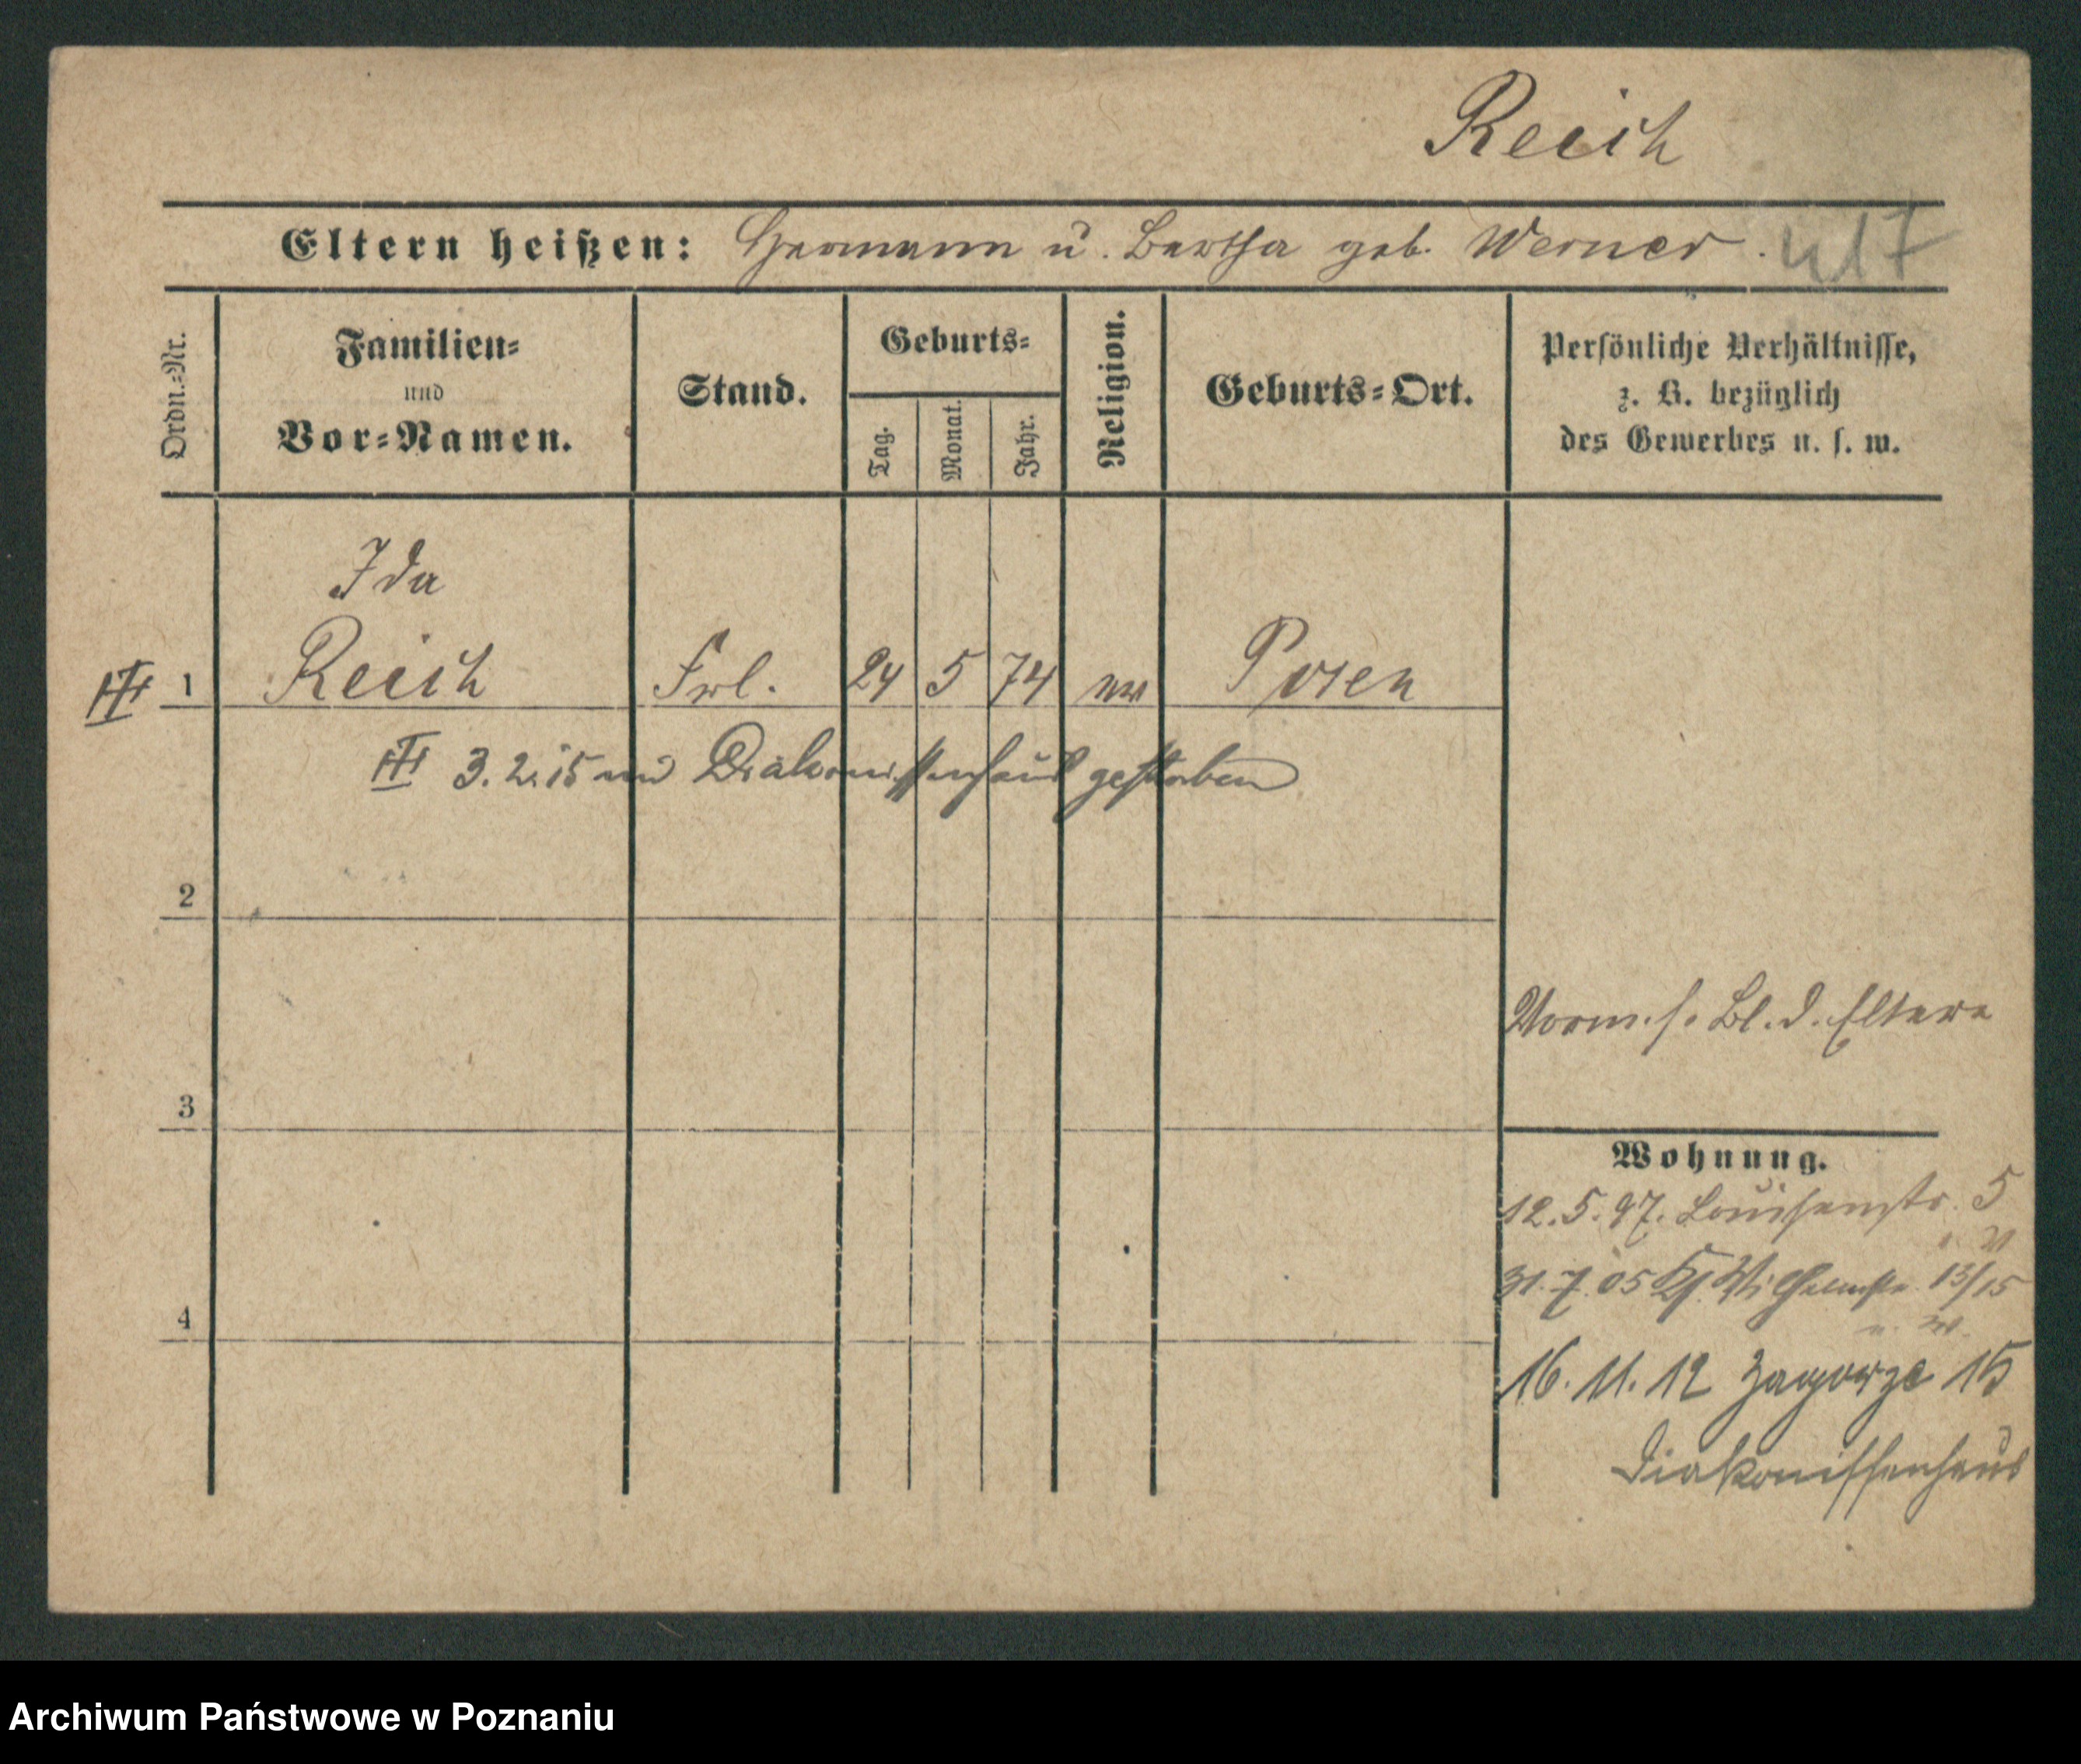 Reich
Eltern heißen: Hermann u. Bertha geb. Werner.
Ordn.-Nr.
Familien- und Vor-Namen.
Stand.
Geburts-
Tag.
Monat.
Jahr.
Religion.
Geburts-Ort.
Persönliche Verhältnisse,
z. B. bezüglich
des Gewerbes u. s. w.
Ida
III 1 Reich Frl. 24 5 74 Posen
III 3.2.15 Diakonissenhaus gestorben
2
3
4
Vorm. s. Bl. d. Eltern
Wohnung.
12.5.97. Louisenstr. 5
31.7.05 Wilhelmstr. 13/15
16.11.12 Zagorze 15
Diakonissenhaus
Archiwum Państwowe w Poznaniu